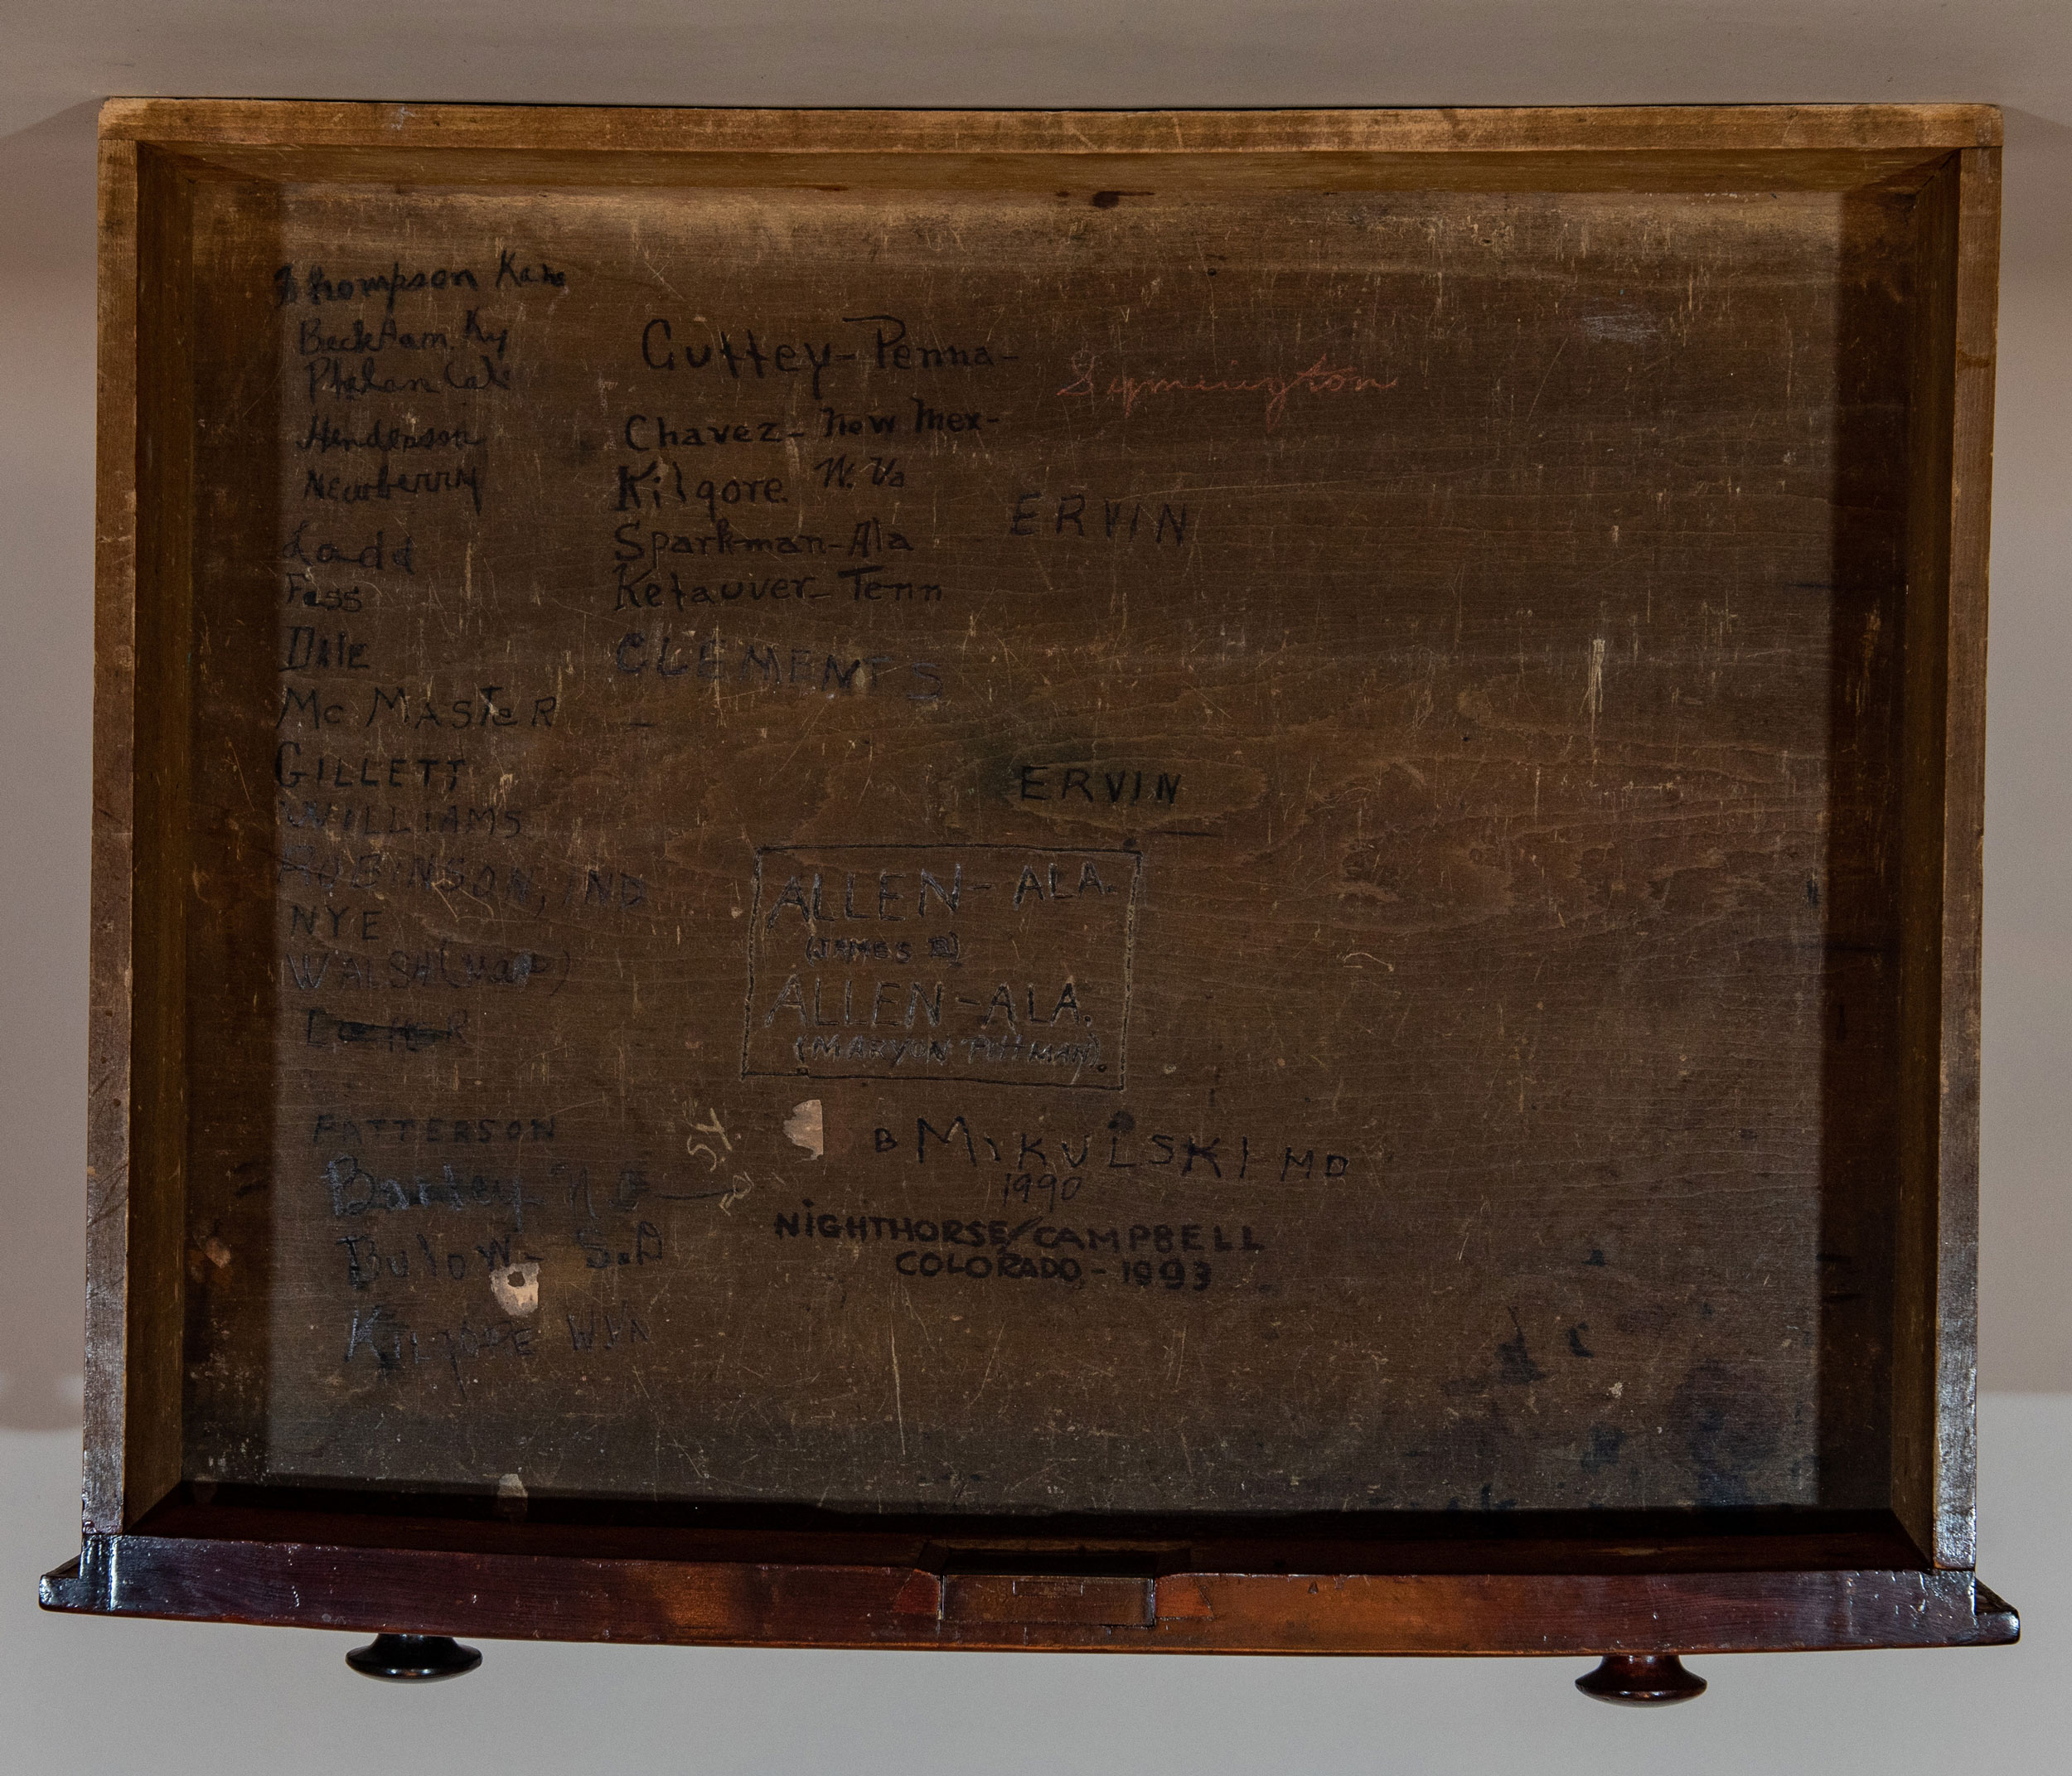 Thompson Kans
Beckham. Ky
Phelan Cal
Henderson
Newberry
Ladd
Fess
Dale
McMASTeR
GILLETT
WILLIAMS
ROBINSON, IND
NYE
WALSH (Mas)
PATTERSON
N C
Bulow - S.D
KILGORE WVA
Guffey - Penna -
Chavez - New Mex -
Kilgore W. Va
Sparkman - Ala
Kefauver - Tenn
CLEMENTS
Symington
ERVIN
ERVIN
ALLEN - ALA.
(JAMES B)
ALLEN - ALA.
(MARYON PITTMAN)
B MIKULSKI MD
1990
NIGHTHORSE/CAMPBELL
COLORADO - 1993